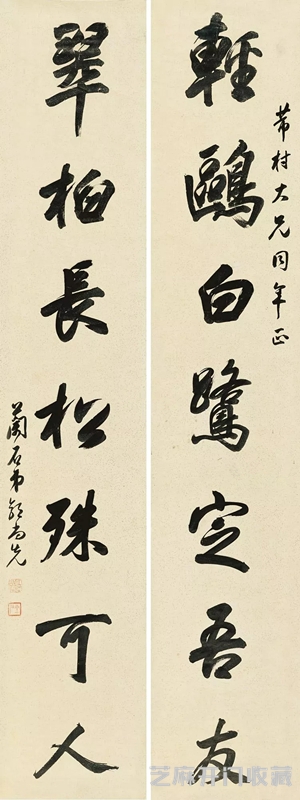 芾村大兄同年正
輕鷗白鷺定吾友
翠柏長松殊可人
蘭石弟郭尚先
芝麻开门收藏